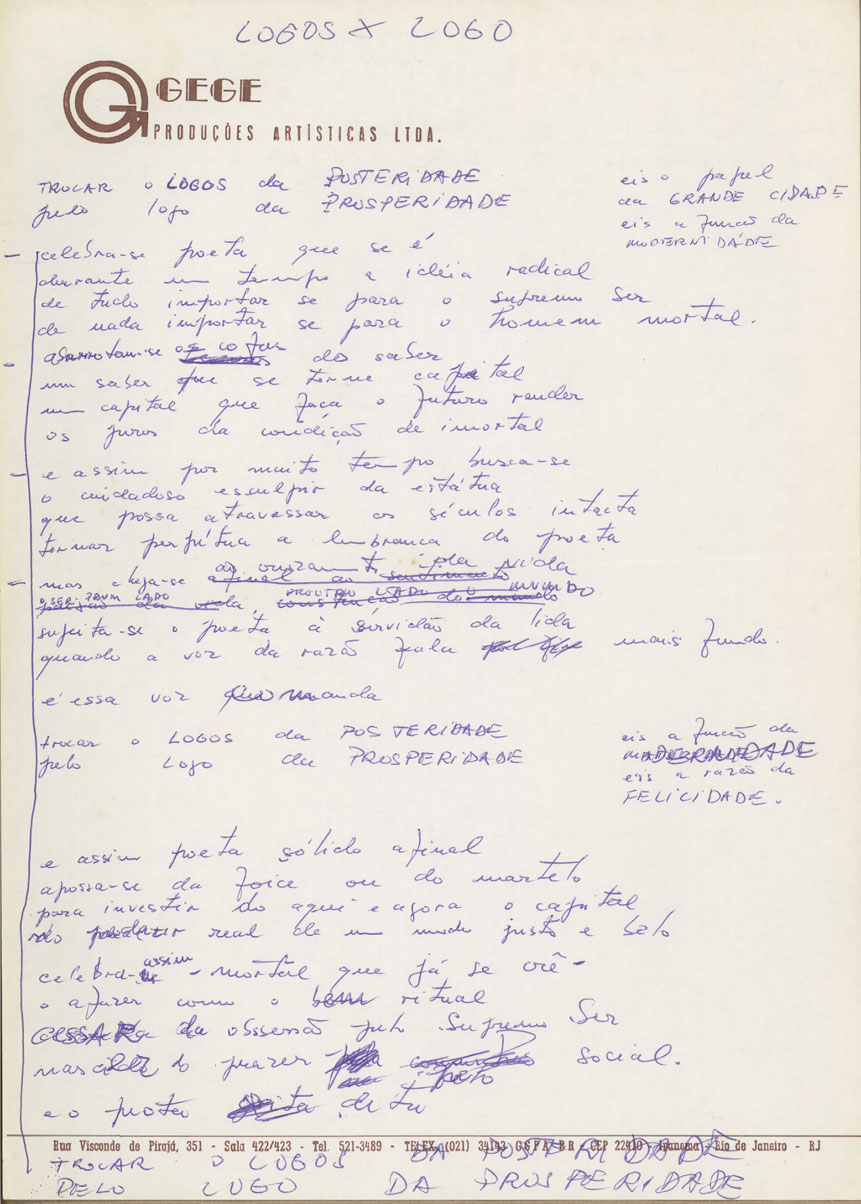 LOGOS X LOGO
GEGE
PRODUÇÕES ARTÍSTICAS LTDA.
TROCAR o LOGOS da POSTERIDADE
pelo logo da PROSPERIDADE
eis o papel
da GRANDE CIDADE
eis a função da
MODERNIDADE
celebra-se poeta que se é
durante um tempo a idéia radical
de tudo importar se para o supremo ser
de nada importar se para o homem mortal.
abarrotam-se os cofres do saber
um saber que se torne capital
um capital que faça o futuro render
os juros da condição de imortal
e assim por muito tempo busca-se
o cuidadoso esculpir da estátua
que possa atravessar os séculos intacta
tornar perpétua a lembrança do poeta
ao cruzamento da vida
mas chega-se afinal ao
O SER PRUM LADO PROUTRO LADO O MUNDO
sujeita-se o poeta à servidão da lida
quando a voz da razão fala mais fundo.
e essa voz comanda
trocar o LOGOS da POSTERIDADE
pelo LOGO da PROSPERIDADE
eis a função da
MODERNIDADE
eis a razão da
FELICIDADE.
e assim poeta sólido afinal
apossa-se da foice ou do martelo
para investir do aqui e agora o capital
no produzir real de um modo justo e belo
celebra-se assim - mortal que já se crê -
o afazer como o bem ritual
CESSAR da obssessão pelo Supremo Ser
nascido do prazer pelo social.
e o poeta dita
Rua Visconde de Pirajá, 351 - Sala 422/423 - Tel. 521-3489 - TELEX (021) 34143 GGPA BR - CEP 22410 - Ipanema - Rio de Janeiro - RJ
TROCAR O LOGOS DA POSTERIDADE
PELO LOGO DA PROSPERIDADE